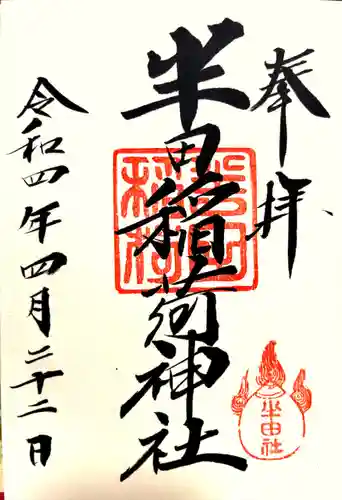 奉拝
半田稲荷神社
半田社
令和四年四月二十二日